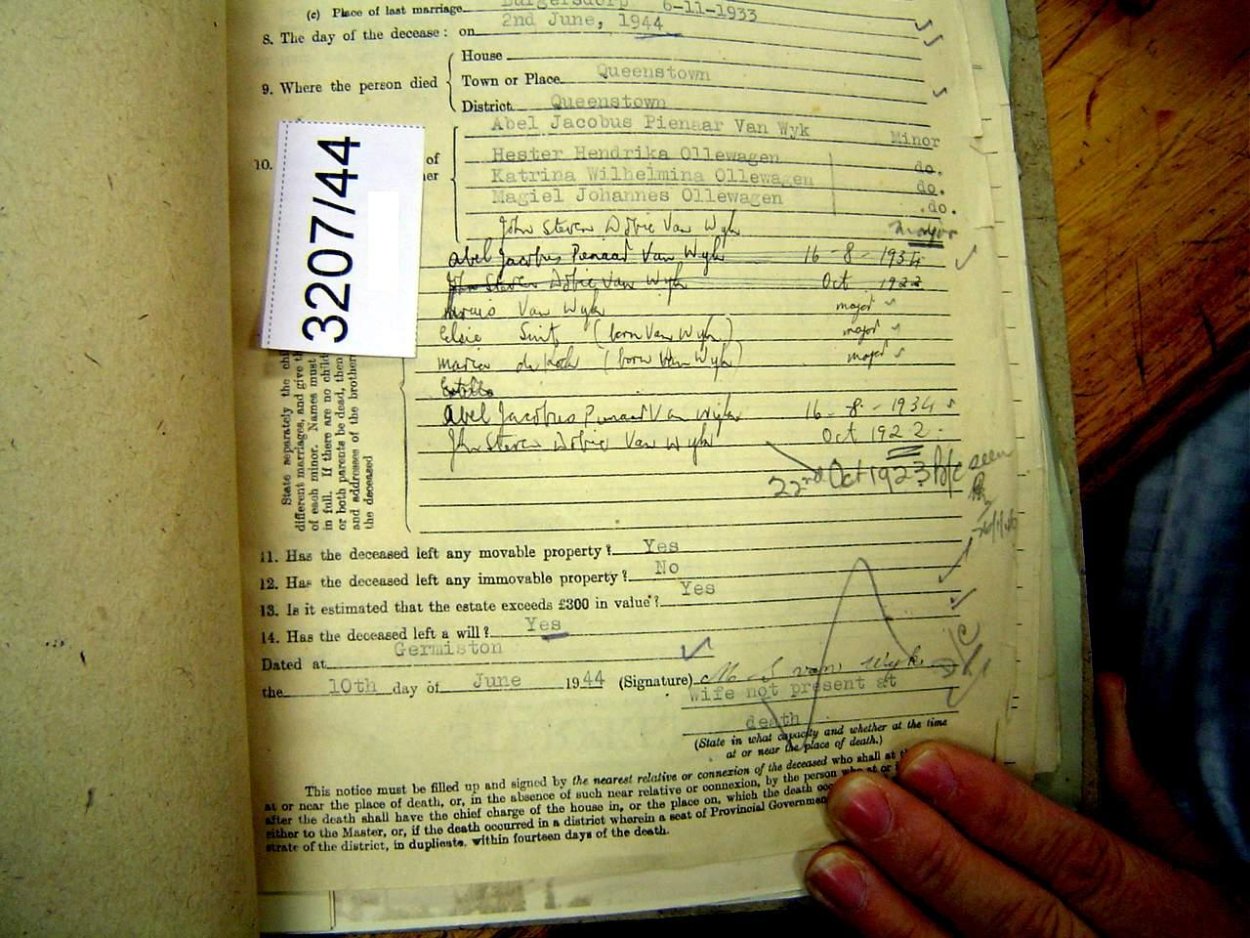 (c) Place of last marriage Burgersdorp 6-11-1933
8. The day of the decease: on 2nd June, 1944
House
9. Where the person died Town or Place Queenstown
District Queenstown
Abel Jacobus Pienaar Van Wyk Minor
10. of
Hester Hendrika Ollewagen do.
her
Katrina Wilhelmina Ollewagen do.
Magiel Johannes Ollewagen do.
3207/44
John Steven Dobie Van Wyk major
Abel Jacobus Pienaar Van Wyk 16-8-1934
John Steven Dobie Van Wyk Oct 1922
Van Wyk major
Elsie Smit (born Van Wyk) major
Maria de Kock (born Van Wyk) major
Abel Jacobus Pienaar Van Wyk 16-8-1934
John Steven Dobie Van Wyk Oct 1922
22nd Oct 1923 b/c seen
State separately the chi
different marriages, and give th
of each minor. Names must
in full. If there are no child
or both parents be dead, then
and addresses of the brother
the deceased
11. Has the deceased left any movable property? Yes
12. Has the deceased left any immovable property? No
13. Is it estimated that the estate exceeds £300 in value? Yes
14. Has the deceased left a will? Yes
Dated at Germiston
the 10th day of June 1944 (Signature) M S van Wyk
Wife not present at
death
(State in what capacity and whether at the time
at or near the place of death.)
This notice must be filled up and signed by the nearest relative or connexion of the deceased who shall at th
at or near the place of death, or, in the absence of such near relative or connexion, by the person who at or i
after the death shall have the chief charge of the house in, or the place on, which the death occ
either to the Master, or, if the death occurred in a district wherein a seat of Provincial Governmen
strate of the district, in duplicate, within fourteen days of the death.